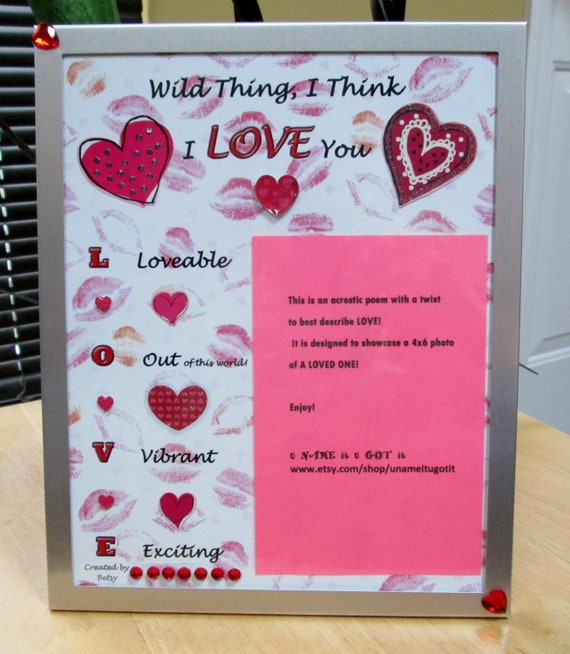 Wild Thing, I Think
I LOVE You
L Loveable
O Out of this world!
V Vibrant
E Exciting
Created by
Betsy
This is an acrostic poem with a twist
to best describe LOVE!
It is designed to showcase a 4x6 photo
of A LOVED ONE!
Enjoy!
U NAME it U GOT it
www.etsy.com/shop/unameitugotit